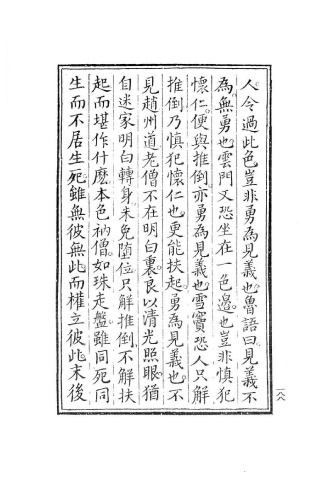 人令過此色豈非勇為見義也魯語曰見義不
為無勇也雲門又恐坐在一色邊也豈非慎犯
懷仁便與推倒亦勇為見義也雪竇恐人只解
推倒乃慎犯懷仁也更能扶起勇為見義也不
見趙州道老僧不在明白裏良以清光照眼猶
自迷家明白轉身未免墮位只解推倒不解扶
起而堪作什麽本色衲僧如珠走盤雖同死同
生而不居生死雖無彼無此而權立彼此末後
一八八